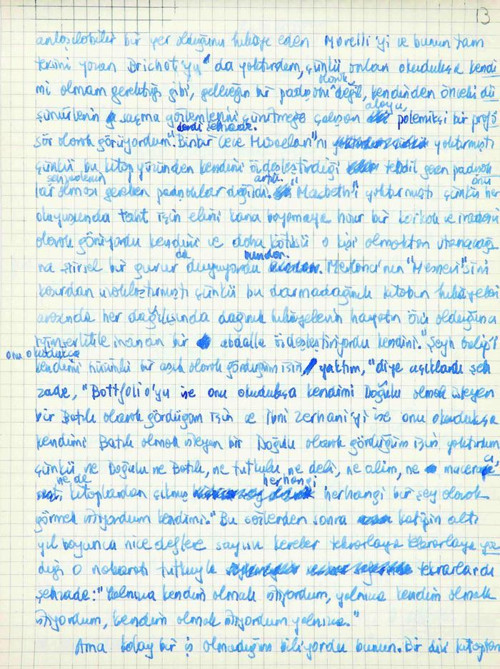 13
anlaşılabilir bir yer olduğunu hikâye eden Morelli'yi ve bunun tam
tersini yazan Brichot'yu da yaktırdım, çünkü onları okudukça kendi
mi olmam gerektiği gibi, geleceğin bir padişahı olarak değil, kendinden önceki dü
şünürlerin saçma gözlemlerini çürütmeye çalışan alaycı polemikçi bir profe
sör olarak görüyordum." derdi Şehzade. "Binbir Gece Masalları"nı yaktırmıştı
çünkü bu kitap yüzünden kendini özdeşleştirdiği tebdil gezen padişah
lar olması gereken padişahlar değildi. "Macbeth"i yaktırmıştı çünkü
olayısında taht için elini kana boyamaya hazır bir korkak ve iradesiz
olarak görüyordu kendini ve daha kötüsü o kişi olmaktan utanacağı
na şiirsel bir gurur da duyuyordu bundan. "Mesnevi"sini
buradan uzaklaştırmıştı çünkü bu darmadağınık kitabın hikâyeleri
arasında her dağılışında dağınık hikâyelerin hayatın özü olduğuna
iyimserlikle inanan bir abdalla özdeşleştiriyordu kendini. "Şeyh Galip'i
onu okudukça
kendimi hüzünlü bir aşık olarak gördüğüm için yaktım," diye açıkladı Şeh
zade, "Bottfolio'yu ise onu okudukça kendimi Doğulu olmak isteyen
bir Batılı olarak gördüğüm için ve İbni Zerhani'yi ise onu okudukça
kendimi Batılı olmak isteyen bir Doğulu olarak gördüğüm için yaktırdım
çünkü ne Doğulu ne Batılı, ne tutkulu, ne deli, ne alim, ne
ne de kitaplardan çıkma herhangi bir şey olarak
görmek istiyordum kendimi." Bu sözlerden sonra katibin altı
yıl boyunca nice deftere sayısız kereler tekrarlaya tekrarlaya yaz
dığı o nakaratı tutkuyla tekrarlardı
Şehzade: "Yalnızca kendim olmak istiyordum, yalnızca kendim olmak
istiyordum, kendim olmak istiyordum yalnızca."
Ama kolay bir iş olmadığını biliyordu bunun. Bir dizi kitaptan